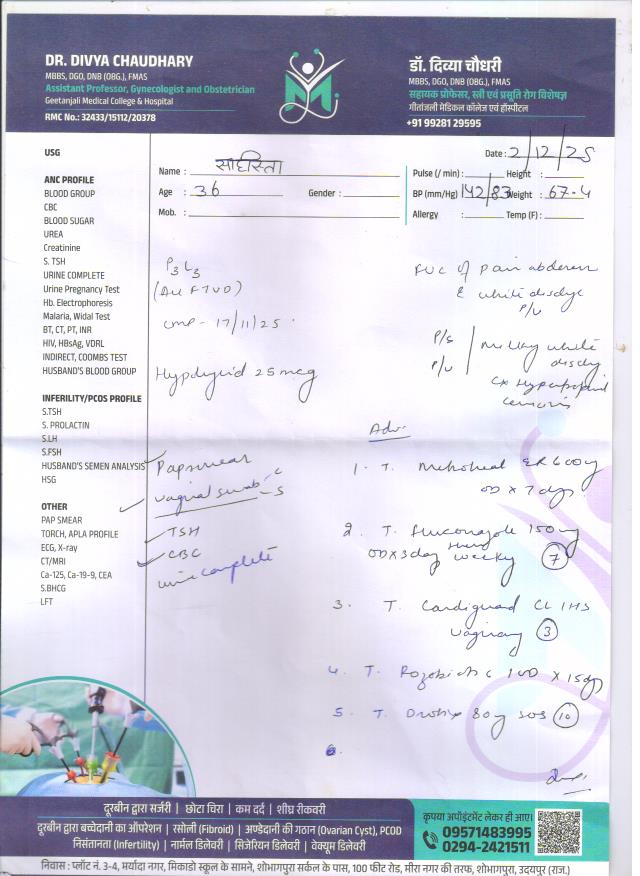 DR. DIVYA CHAUDHARY
MBBS, DGO, DNB (OBG.), FMAS
Assistant Professor, Gynecologist and Obstetrician
Geetanjali Medical College & Hospital
RMC No.: 32433/15112/20378
डॉ. दिव्या चौधरी
MBBS, DGO, DNB (OBG.), FMAS
सहायक प्रोफेसर, स्त्री एवं प्रसूति रोग विशेषज्ञ
गीतांजली मेडिकल कॉलेज एवं हॉस्पीटल
+91 99281 29595
Date: 2/12/25
Name :
Age : 36 Gender :
Mob. :
Pulse (/ min) : Height :
BP (mm/Hg) 142/83 Weight : 67.4
Allergy : Temp (F) :
USG
ANC PROFILE
BLOOD GROUP
CBC
BLOOD SUGAR
UREA
Creatinine
S. TSH
URINE COMPLETE
Urine Pregnancy Test
Hb. Electrophoresis
Malaria, Widal Test
BT, CT, PT, INR
HIV, HBsAg, VDRL
INDIRECT, COOMBS TEST
HUSBAND'S BLOOD GROUP
INFERILITY/PCOS PROFILE
S.TSH
S. PROLACTIN
S.LH
S.FSH
HUSBAND'S SEMEN ANALYSIS
HSG
OTHER
PAP SMEAR
TORCH, APLA PROFILE
ECG, X-ray
CT/MRI
Ca-125, Ca-19-9, CEA
S.BHCG
LFT
P3L3
(All FTVD)
LMP - 17/11/25
25 mcg
Papsmear
Vaginal swab C S
TSH
CBC
Urine complete
pain
& white
P/V
P/S
P/V
Milky white
Cx
Adv.
1. T. 600
OD x 7 days
2. T. Fluconazole 150mg
OD x 3 day weekly 7
3. T. CL
3
4. T. x 15 days
5. T. 80 SOS 10
6.
दूरबीन द्वारा सर्जरी | छोटा चिरा | कम दर्द | शीघ्र रीकवरी
दूरबीन द्वारा बच्चेदानी का ऑपरेशन | रसोली (Fibroid) | अण्डेदानी की गठान (Ovarian Cyst), PCOD
निसंतानता (Infertility) | नार्मल डिलेवरी | सिजेरियन डिलेवरी | वेक्यूम डिलेवरी
कृपया अपोइंटमेंट लेकर ही आए।
09571483995
0294-2421511
निवास : प्लॉट नं. 3-4, मर्यादा नगर, मिकाडो स्कूल के सामने, शोभागपुरा सर्कल के पास, 100 फीट रोड, मीरा नगर की तरफ, शोभागपुरा, उदयपुर (राज.)